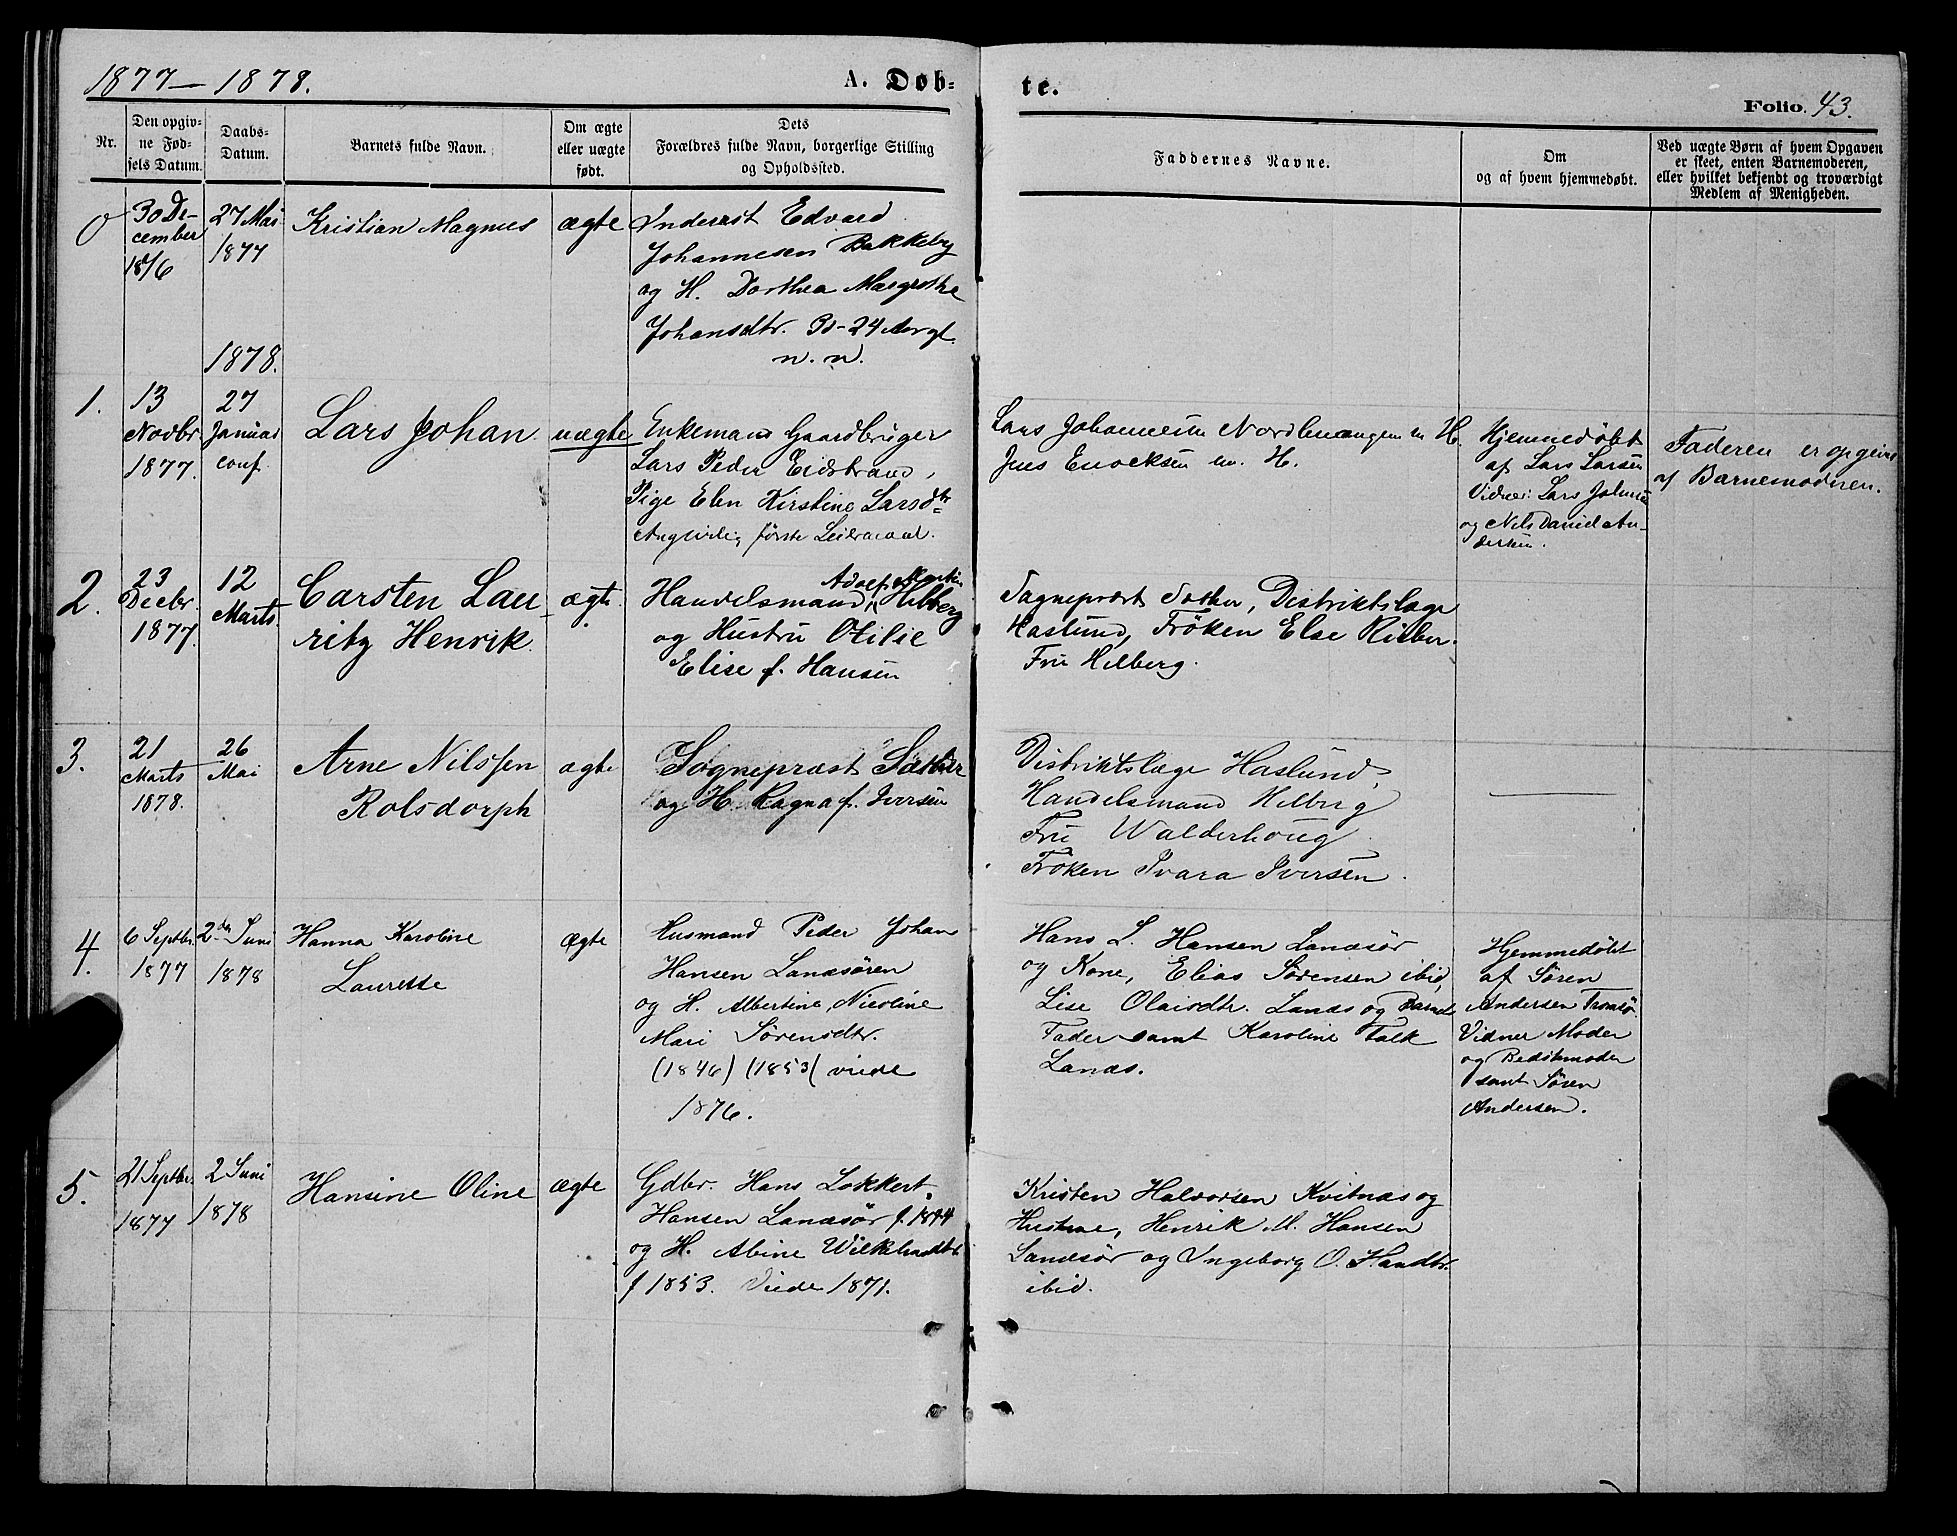 1877–1878.
A. Døb-
te.
Folio. 43.
Nr.
Den opgiv-
ne Fød-
sels Datum.
Daabs-
Datum.
Barnets fulde Navn.
Om ægte
eller uægte
født.
Dets
Forældres fulde Navn, borgerlige Stilling
og Opholdssted.
Faddernes Navne.
Om
og af hvem hjemmedøbt.
Ved uægte Børn af hvem Opgaven
er skeet, enten Barnemoderen,
eller hvilket bekjendt og troværdigt
Medlem af Menigheden.
0
30 De-
cember
1876
27 Mai
1877
Kristian Magnus
ægte
Inderst Edvard
Johannesen Bakkeby
og H. Dorthea Margrethe
Johansdtr. 30-24 Aar gl.
n. n.
1878.
1.
13
Novbr
1877.
27
Januar
conf.
Lars Johan
uægte
Enkemand Gaardbruger
Lars Peder Eidstrand,
Pige Elen Kirstine Larsdtr
Angivelig første Leiermaal.
Lars Johannesen m H.
Jens Enocksen m. H.
Hjemmedøbt
af Lars Larsen
Vidner: Lars Johnsen
og Nils Daniel An-
dersen.
Faderen er opgiven
af Barnemoderen.
2.
23
Decbr.
1877.
12
Marts
Carsten Lau-
ritz Henrik
ægte.
Adolf Martin
Handelsmand, Hilberg
og Hustru Otilie
Elise f. Hansen
Sognepræst Sæther, Distriktslæge
Haslund, Frøken Else
Fru Hilberg.
3.
21
Marts
1878.
26
Mai
Arne Nilssen
Rolsdorph
ægte
Sognepræst Sæther
og H. Ragna f. Iversen
Distriktslæge Haslund,
Handelsmand Hilberg
Fru Walderhoug
Frøken Iversen.
4.
6 Septbr.
1877
2den Juni
1878
Hanna Karoline
Laurette
Ægte
Husmand Peder Johan
Hansen Lanæsøren
og H. Albertine Nicoline
Mari Sørensdtr.
(1846) (1853) viede
1876.
Hans L. Hansen Lanæsør
og Kone, Elias Sørensen ibid,
Lise Olaisdtr. Lanæs og Barnets
Fader samt Karoline Falk
Lanæs.
Hjemmedøbt
af Søren
Andersen Tromsø.
Vidner Moder
og Bedstemoder
samt Søren
Andersen.
5.
21 Septbr.
1877
2 Juni
1878
Hansine Oline
ægte
Gdbr. Hans Lokkert
Hansen Lanæsør f. 1844
og H. Abine
f 1853. Viede 1871.
Kristen Halvorsen Kvitnæs og
Hustrue, Henrik M. Hansen
Lanæsør og Ingeborg O. Handtr.
ibid.